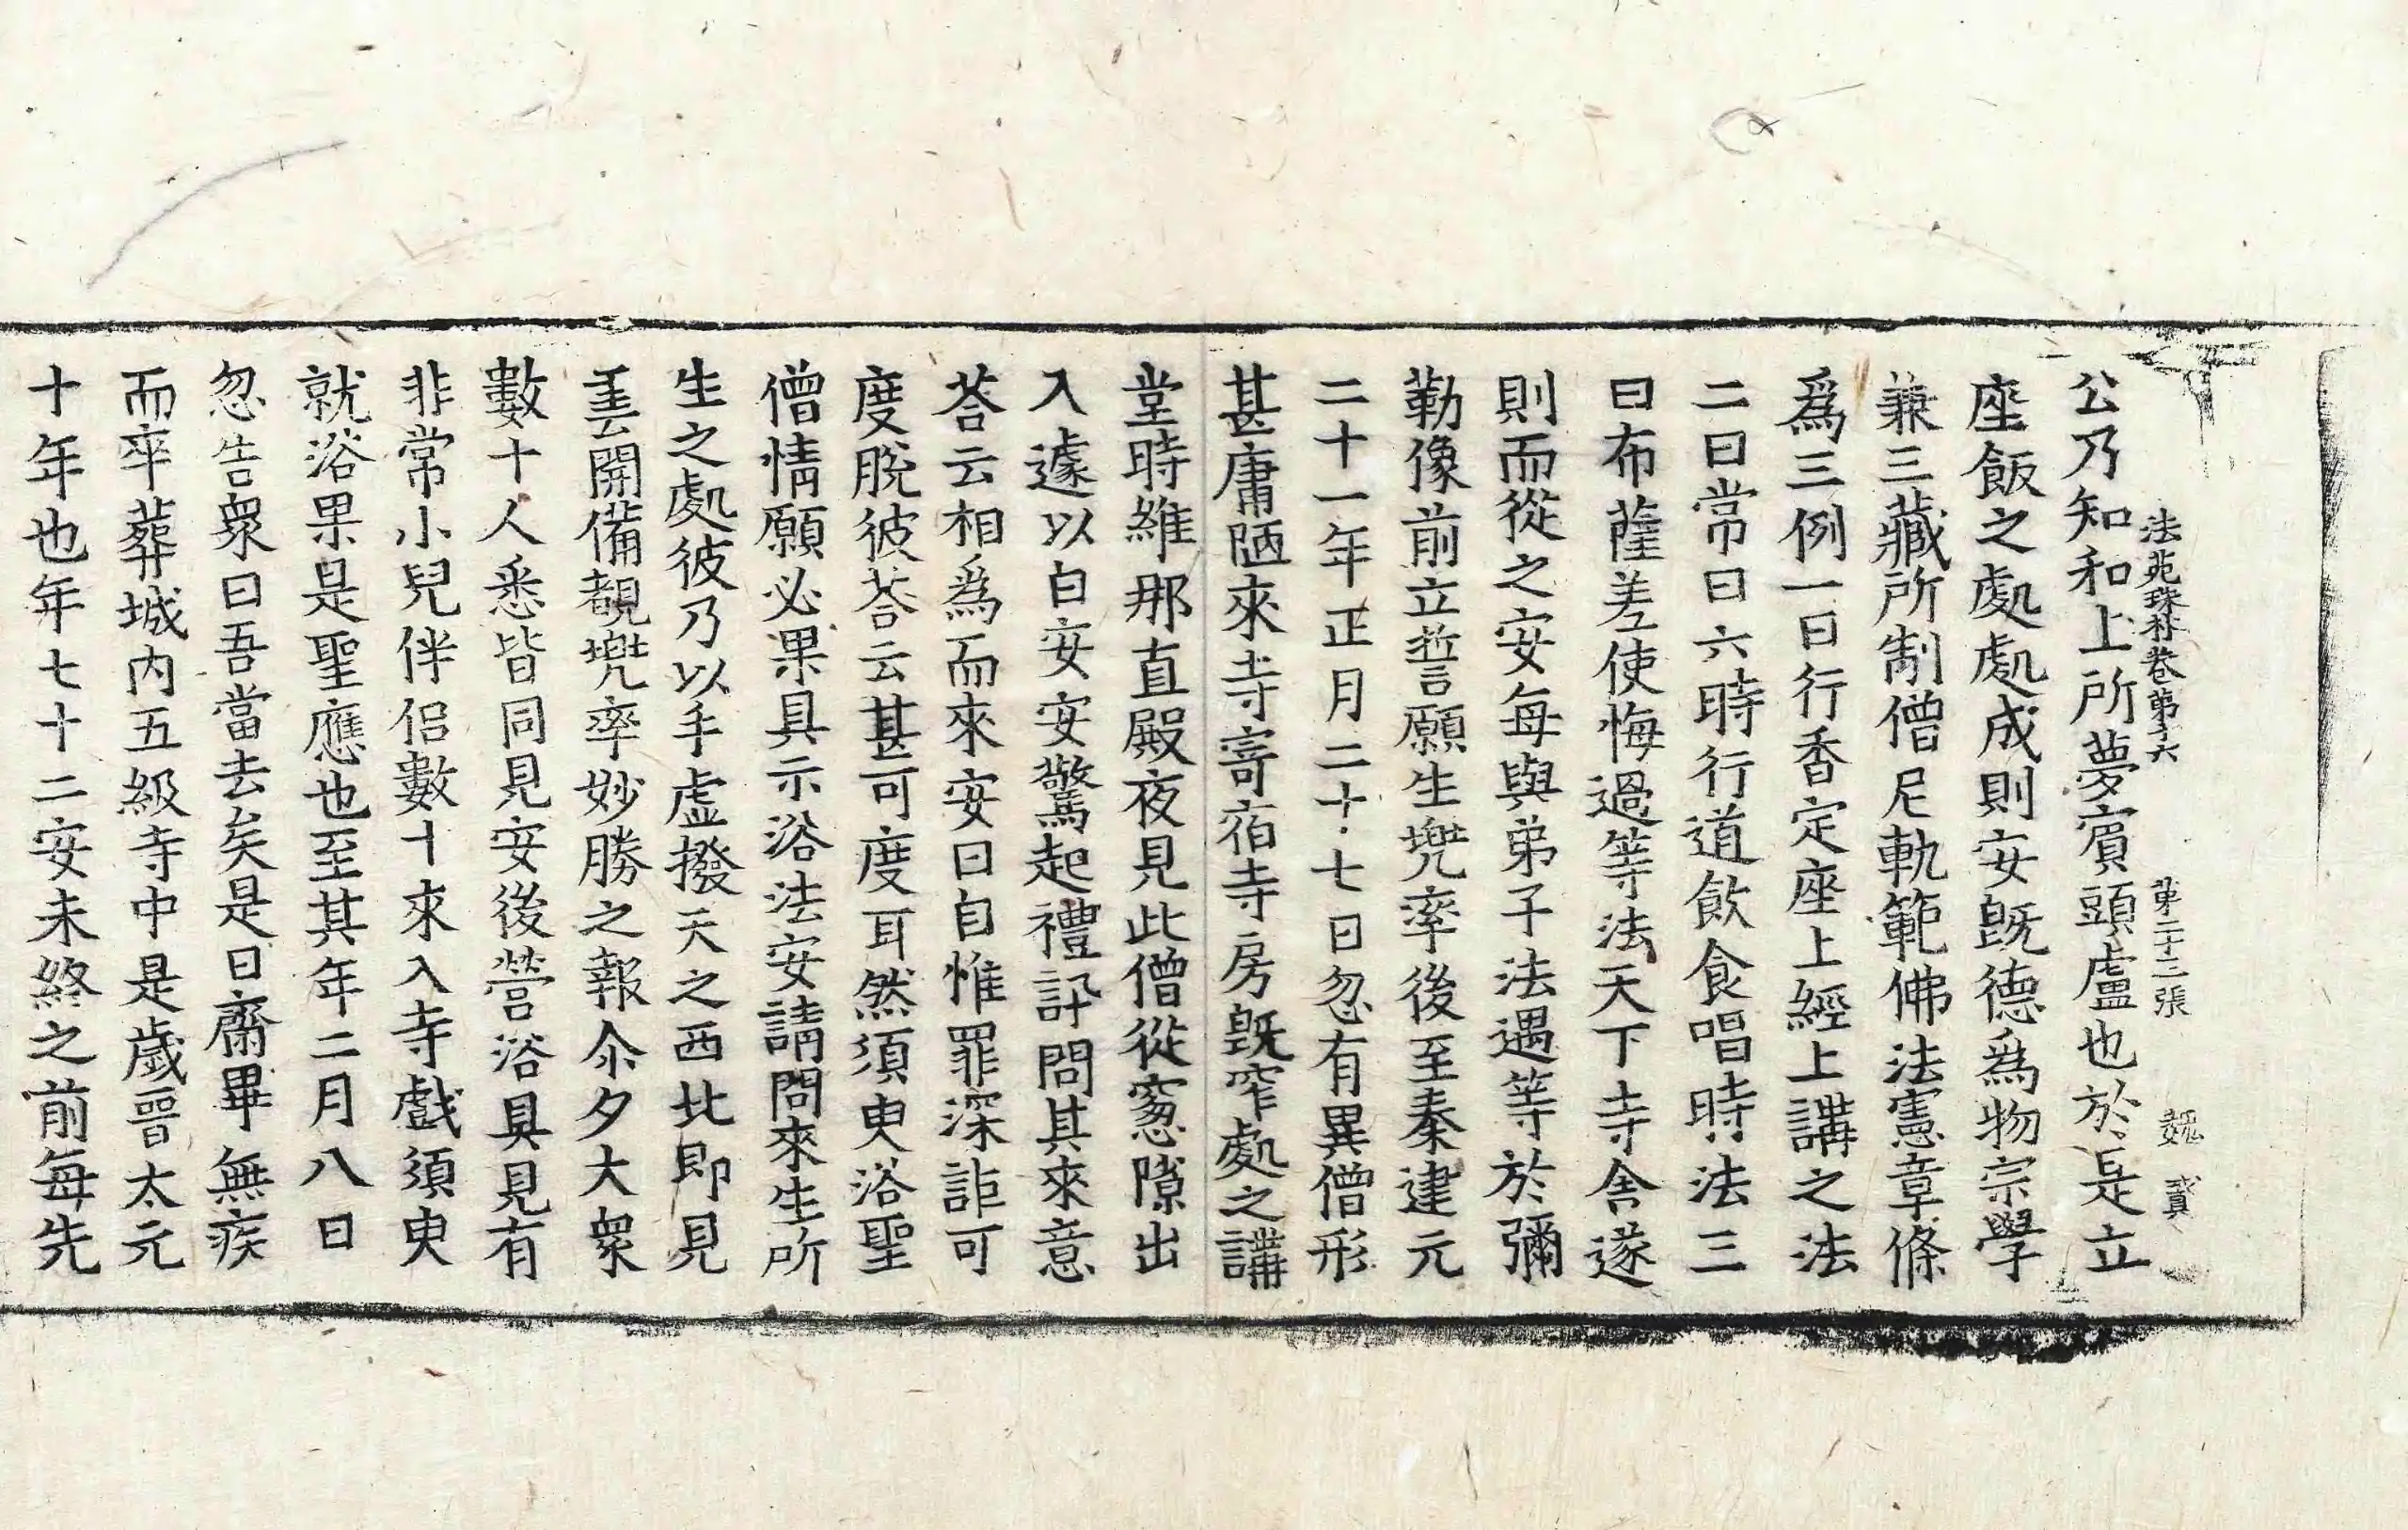 法苑珠林卷第十六 第二十三張 𩲾 貳
公乃知和上所夢賓頭盧也於是立
座飯之處處成則安旣德爲物宗學
兼三藏所制僧尼軌範佛法憲章條
爲三例一曰行香定座上經上講之法
二曰常日六時行道飮食唱時法三
曰布薩差使悔過等法天下寺舍遂
則而從之安每與弟子法遇等於彌
勒像前立誓願生兠率後至秦建元
二十一年正月二十七日忽有異僧形
甚庸陋來寺寄宿寺房旣窄處之講
堂時維那直殿夜見此僧從窻隙出
入遽以白安安驚起禮訊問其來意
荅云相爲而來安曰自惟罪深詎可
度脫彼荅云甚可度耳然須臾浴聖
僧情願必果具示浴法安請問來生所
生之處彼乃以手虛撥天之西北即見
雲開備覩兠率妙勝之報尒夕大衆
數十人悉皆同見安後營浴具見有
非常小兒伴侣數十來入寺戲須臾
就浴果是聖應也至其年二月八日
忽告衆曰吾當去矣是日齋畢無疾
而卒葬城內五級寺中是歲晉太元
十年也年七十二安未終之前每先